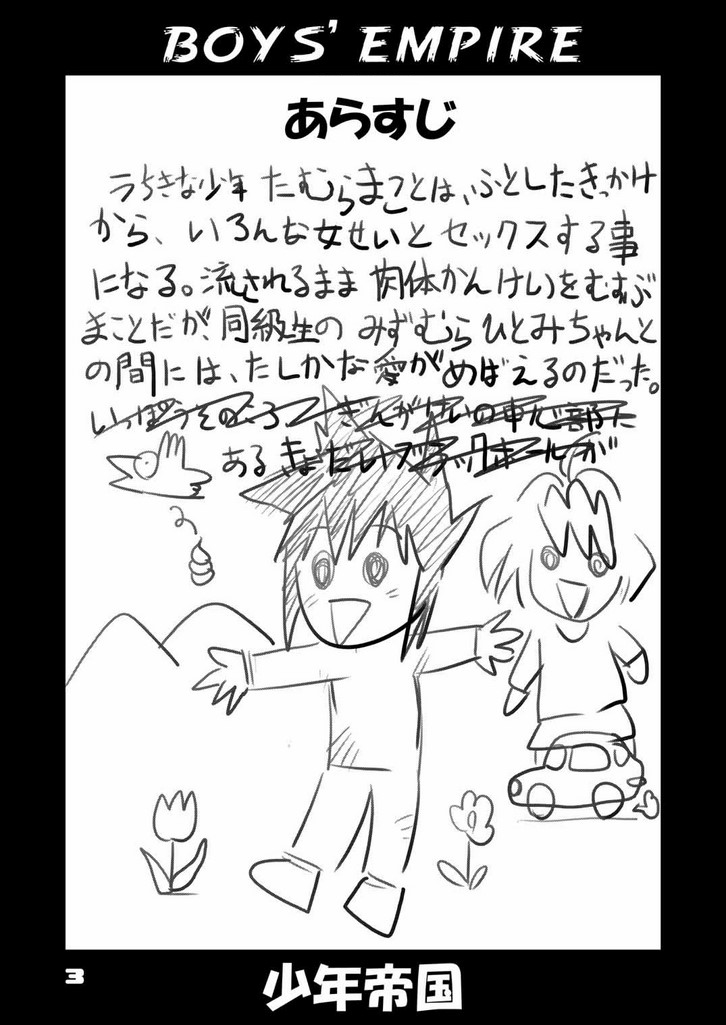 BOYS' EMPIRE
あらすじ
うちきな少年 たむらまことは、ふとしたきっかけ
から、いろんな女せいとセックスする事
になる。流されるまま 肉体かんけいをむすぶ
まことだが、同級生の みずむらひとみちゃんと
の間には、たしかな愛がめばえるのだった。
いっぽうそのころ ぎんがけいの中心部に
ある きょだいブラックホールが
3
少年帝国